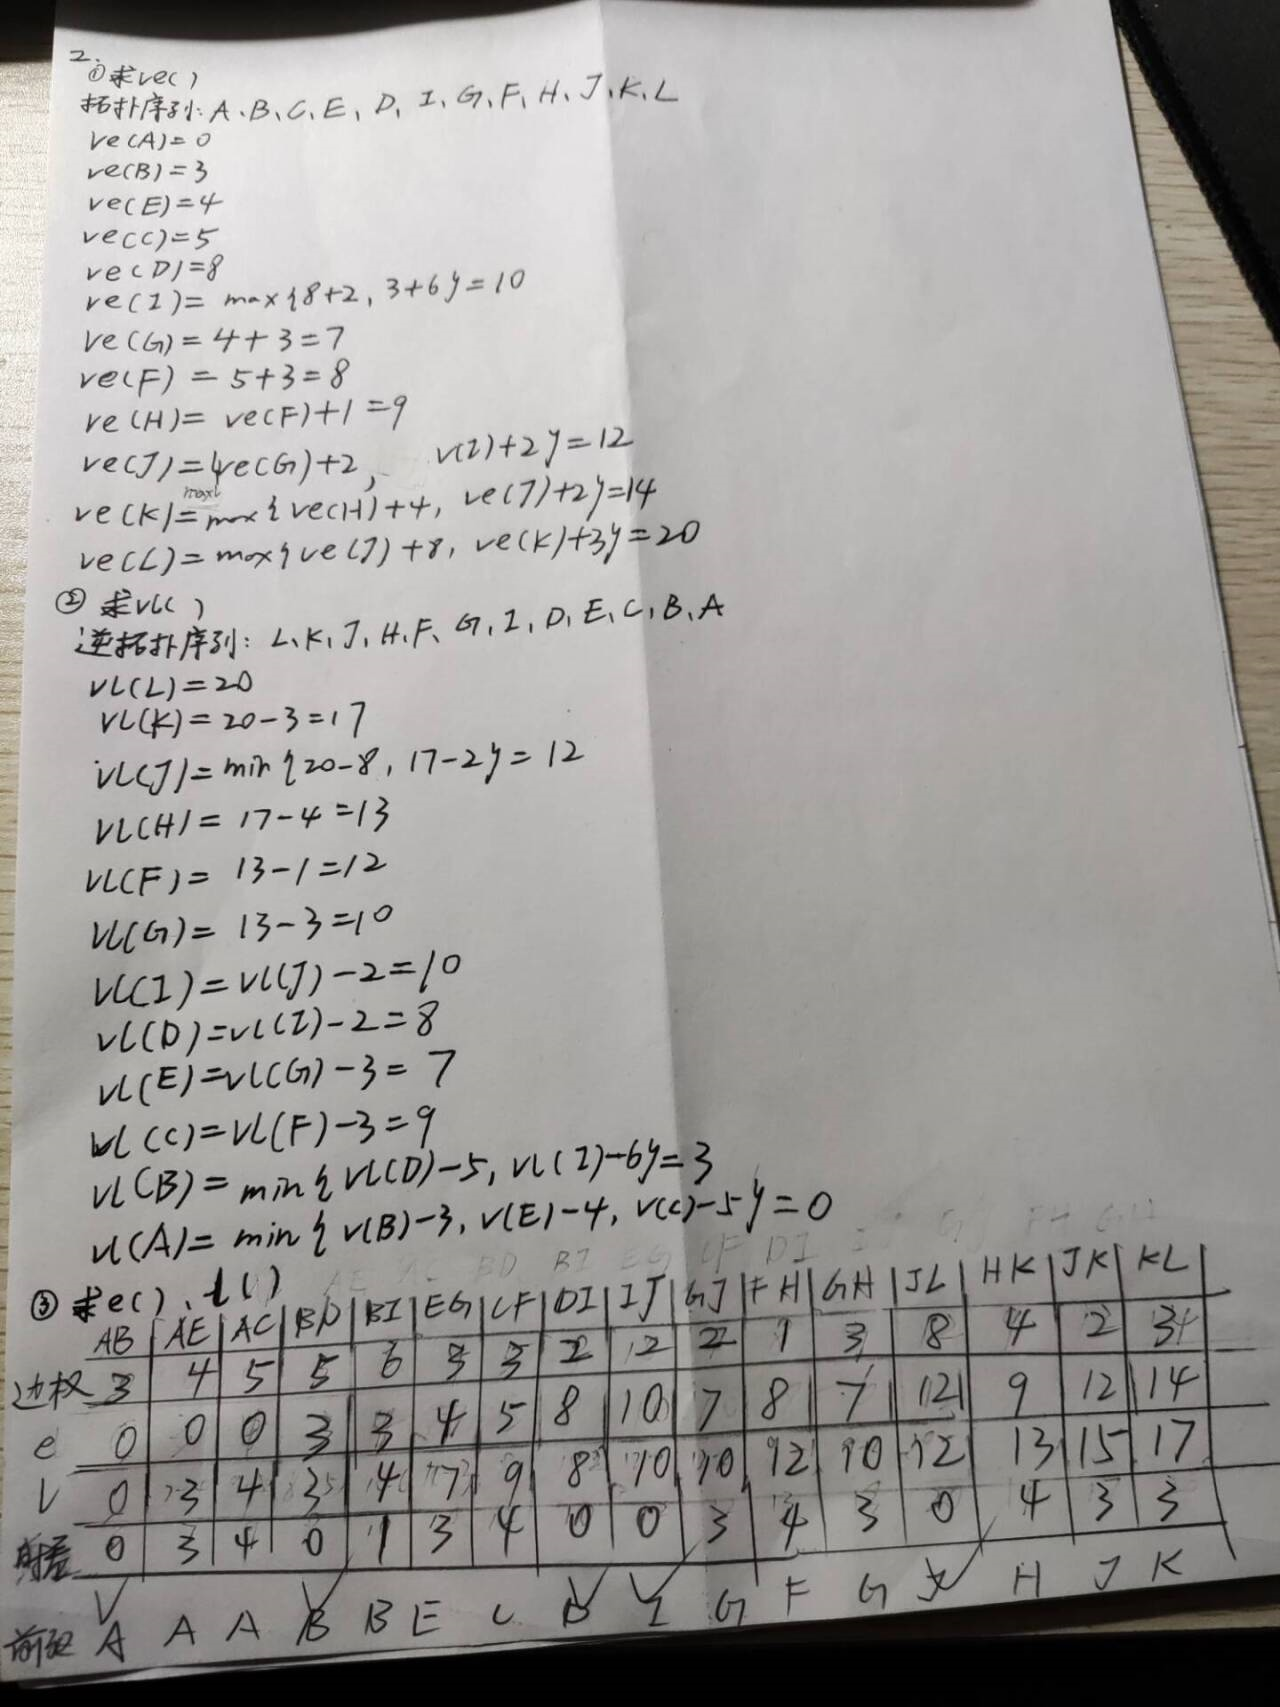 2.
①求ve()
拓扑序列: A、B、C、E、D、I、G、F、H、J、K、L
ve(A)=0
ve(B)=3
ve(E)=4
ve(C)=5
ve(D)=8
ve(I)= max{8+2, 3+6}=10
ve(G)=4+3=7
ve(F)=5+3=8
ve(H)= ve(F)+1=9
ve(J)={ve(G)+2, v(I)+2}=12
max
ve(K)=max{ve(H)+4, ve(J)+2}=14
ve(L)=max{ve(J)+8, ve(K)+3}=20
② 求vl()
逆拓扑序列: L、K、J、H、F、G、I、D、E、C、B、A
vl(L)=20
vl(K)=20-3=17
vl(J)=min{20-8, 17-2}=12
vl(H)=17-4=13
vl(F)=13-1=12
vl(G)=13-3=10
vl(I)=vl(J)-2=10
vl(D)=vl(I)-2=8
vl(E)=vl(G)-3=7
vl(C)=vl(F)-3=9
vl(B)=min{vl(D)-5, vl(I)-6}=3
vl(A)=min{v(B)-3, v(E)-4, v(C)-5}=0
③ 求e()、l()
AB AE AC BD BI EG CF DI IJ GJ FH GH JL HK JK KL
边权 3 4 5 5 6 3 3 2 2 2 1 3 8 4 2 3
e 0 0 0 3 3 4 5 8 10 7 8 7 12 9 12 14
l 0 3 4 3 4 7 9 8 10 10 12 10 12 13 15 17
时差 0 3 4 0 1 3 4 0 0 3 4 3 0 4 3 3
前驱 A A A B B E C D I G F G J H J K